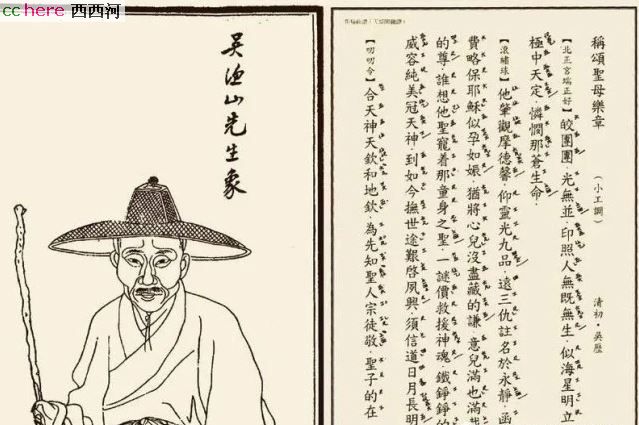 cchere 西西河
吳漁山先生象
稱頌聖母樂章
（小工調）
清初·吳歷
【北正宮端正好】皎團團·光無並·印照人無旣無生·似海星明立
極中天定·憐憫那蒼生命·
【滾繡球】他肇觀摩德馨·仰靈光九品·遠三仇註名於永靜·函
費略保耶穌似孕如娠·猶將心兒沒盡藏的謙·意兒滿也滿哉
的尊·誰想他聖寵着那童身之聖·一謎價救援神魂·鐵錚錚的
威容純美冠天神·到如今撫世途艱啓夙興·須信道日月長明
【叨叨令】合天神天欽和地欽·為先知聖人宗徒敬·聖子的在